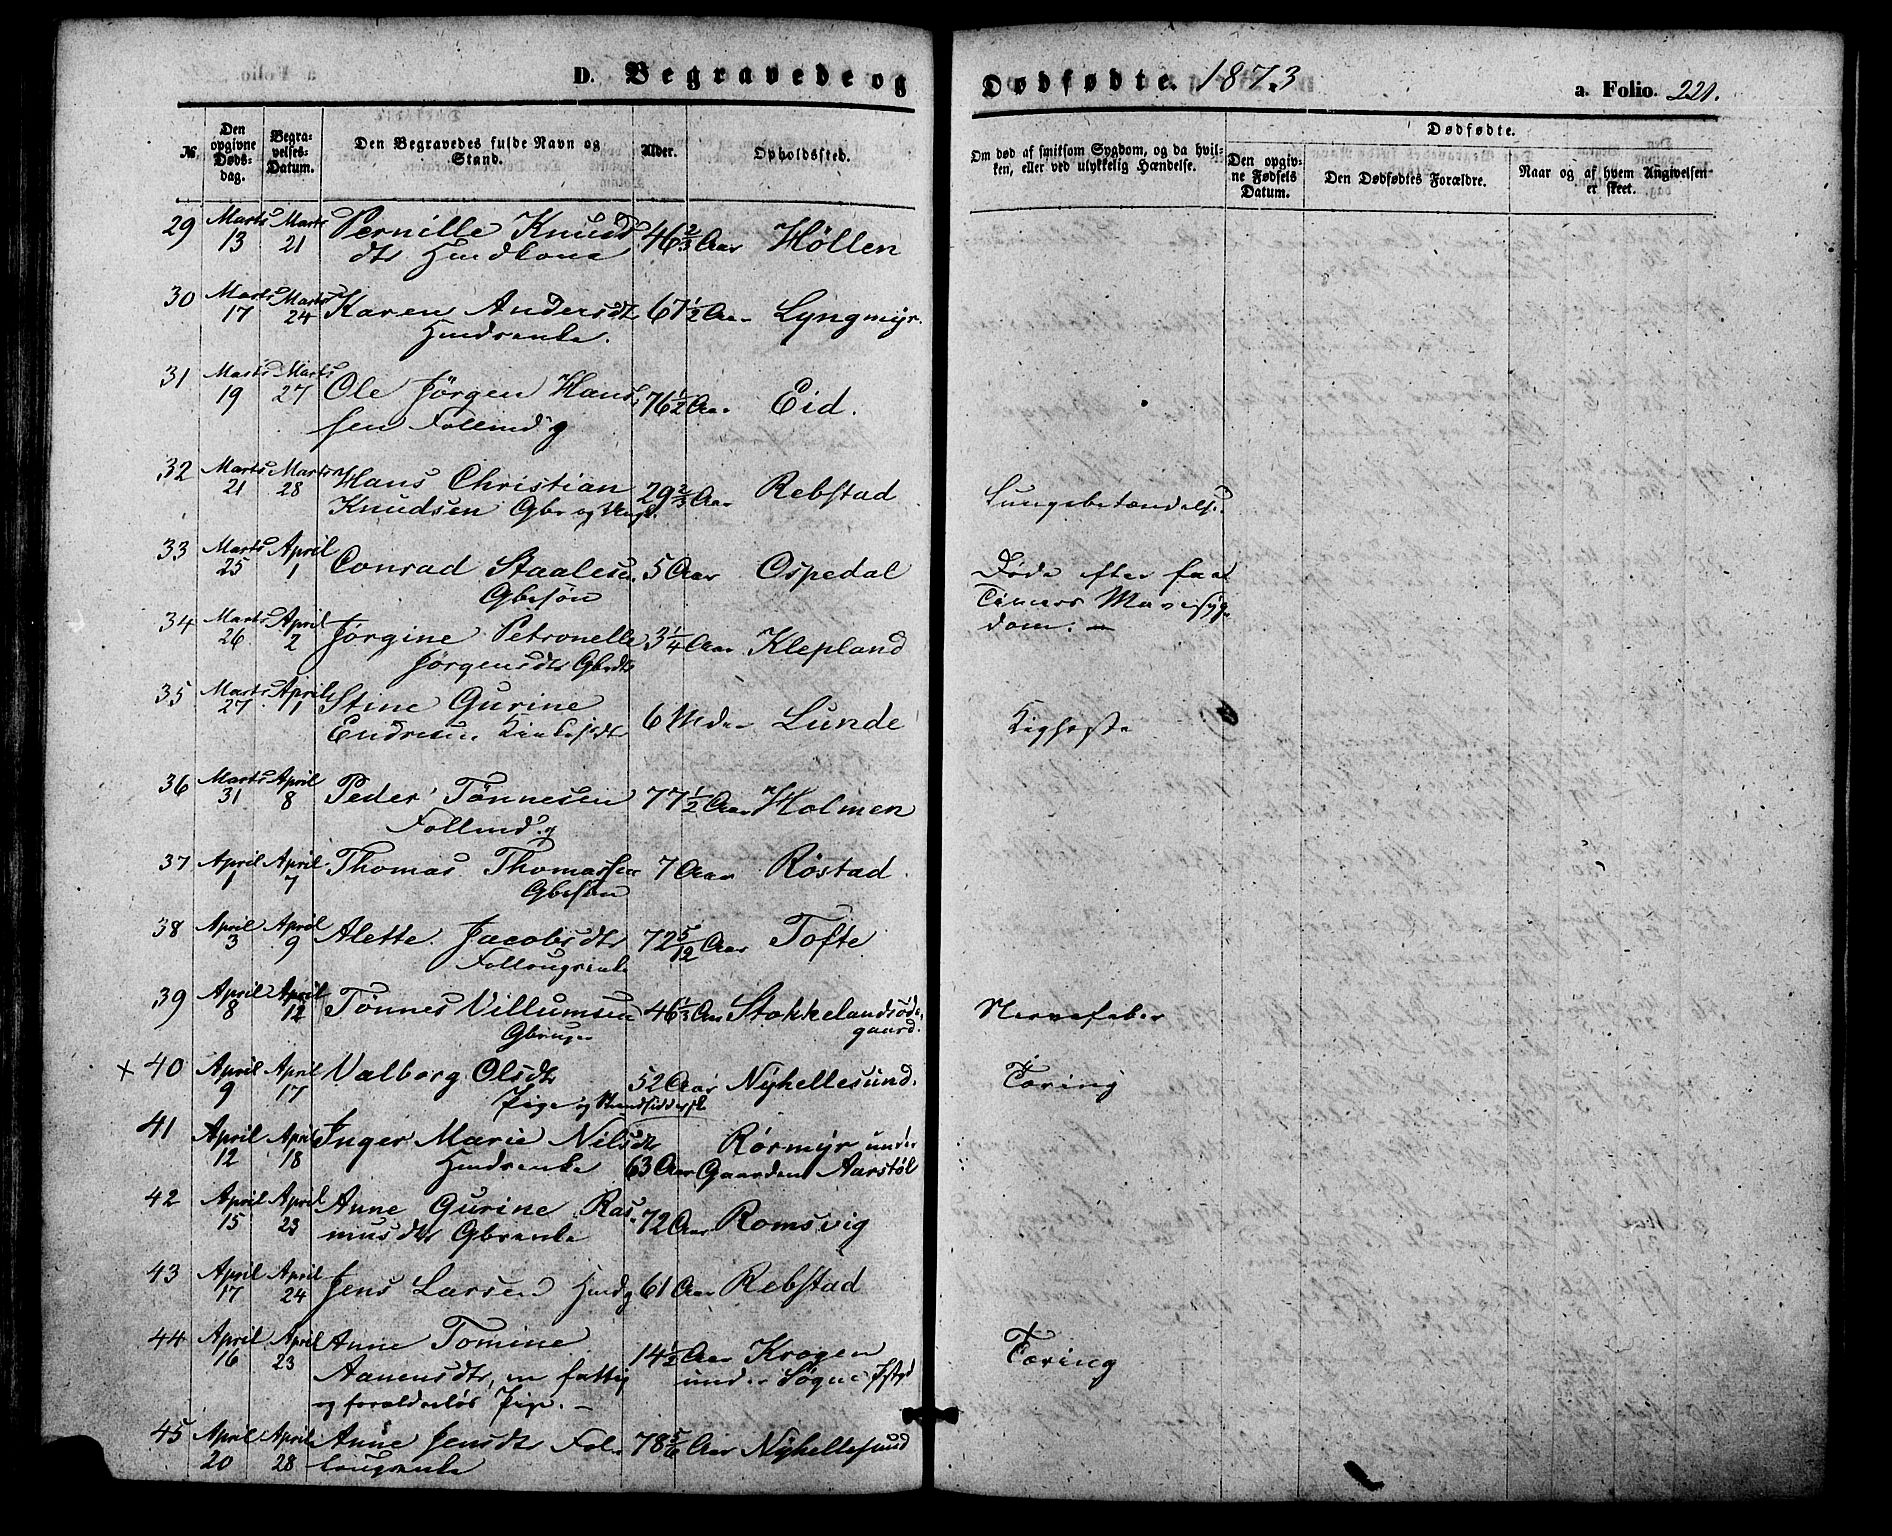 D. Begravede og Dødfødte. 1873 a. Folio. 221.
№ Den opgivne Dødsdag. Begravelses-Datum. Den Begravedes fulde Navn og Stand. Alder. Opholdssted. Om død af smitsom Sygdom, og da hvilken, eller ved ulykkelig Hændelse. Dødfødte. Den opgivne Fødsels Datum. Den Dødfødtes Forældre. Naar og af hvem Angivelsen er skeet.
29 Marts 13 Marts 21 Pernille Knuds
dtr. Hmdkone 46 2/3 Aar Høllen
30 Marts 17 Marts 24 Karen Andersdtr
Hmdsenke. 67 1/2 Aar Lyngmyr.
31 Marts 19 Marts 27 Ole Jørgen Han
sen Follmd 76 1/2 Aar Eid.
32 Marts 21 Marts 28 Hans Christian
Knudsen Gbr og Ungk. 29 2/3 Aar Rebstad Lungebetændelse
33 Marts 25 April 1 Conrad Staalesen
Gbrsøn 5 Aar Ospedal Døde efter faa
Timers Mavesyg-
dom.
34 Marts 26 April 2 Jørgine Petronelle
Jørgensdtr Gbrdtr 3 1/4 Aar Klepland
35 Marts 27 April 1 Stine Gurine
Endresen 6 Mdr Lunde Kighoste
36 Marts 31 April 8 Peder Tønnesen
Follmd. 77 1/2 Aar Holmen
37 April 1 April 7 Thomas Thomassen
Gbrsøn 7 Aar Røstad
38 April 3 April 9 Alette Jacobsdtr
Follougsenke 72 5/12 Aar Tofte
39 April 8 April 12 Tønnes Villumsen
Gbruger 46 1/3 Aar Stokkelandsøde-
gaard. Nervefeber
× 40 April 9 April 17 Valborg Olsdtr
Pige og Strandsidder 52 Aar Nyhellesund. Tæring
41 April 12 April 18 Inger Marie Nilsdtr
Hmdsenke 63 Aar Rørmyr under
Gaarden Aarstøl
42 April 15 April 23 Anne Gurine Ras-
musdtr Gbrenke 72 Aar Romsvig
43 April 17 April 24 Jens Larsen Hmd 61 Aar Rebstad
44 April 16 April 23 Anne Tomine
Aanensdtr, en fattig
og forældreløs Pige. 14 1/2 Aar Krogen
under Søgne Pstgd Tæring
45 April 20 April 28 Anne Jensdtr Fol-
lougsenke 78 5/6 Aar Nyhellesund